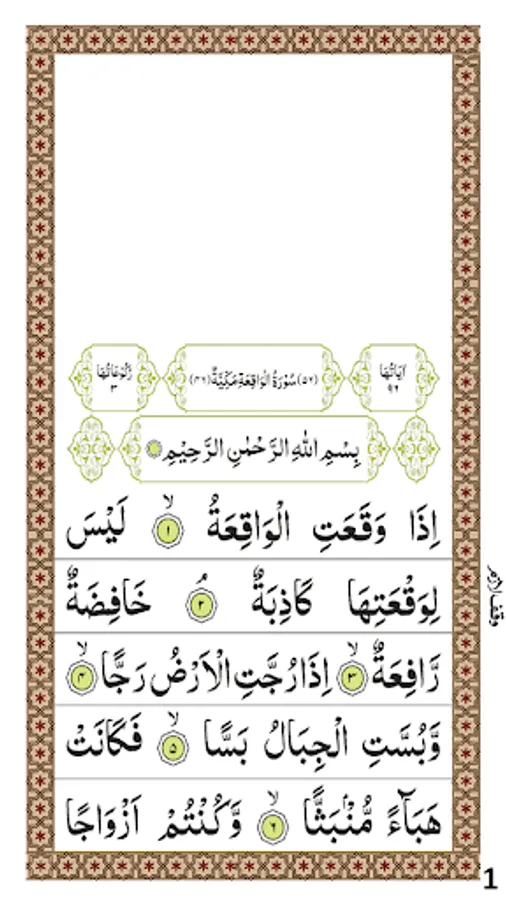 اٰيَاتُهَا ٩٦
(٥٦) سُوْرَةُ الْوَاقِعَةِ مَكِّيَّةٌ (٤٦)
رُكُوْعَاتُهَا ٣
بِسْمِ اللّٰهِ الرَّحْمٰنِ الرَّحِيْمِ
اِذَا وَقَعَتِ الْوَاقِعَةُ ۙ﴿۱﴾ لَيْسَ
لِوَقْعَتِهَا كَاذِبَةٌ ۘ﴿۲﴾ خَافِضَةٌ
رَّافِعَةٌ ۙ﴿۳﴾ اِذَا رُجَّتِ الْاَرْضُ رَجًّا ۙ﴿۴﴾
وَّبُسَّتِ الْجِبَالُ بَسًّا ۙ﴿۵﴾ فَكَانَتْ
هَبَآءً مُّنْۢبَثًّا ۙ﴿۶﴾ وَّكُنْتُمْ اَزْوَاجًا
وقف لازم
1